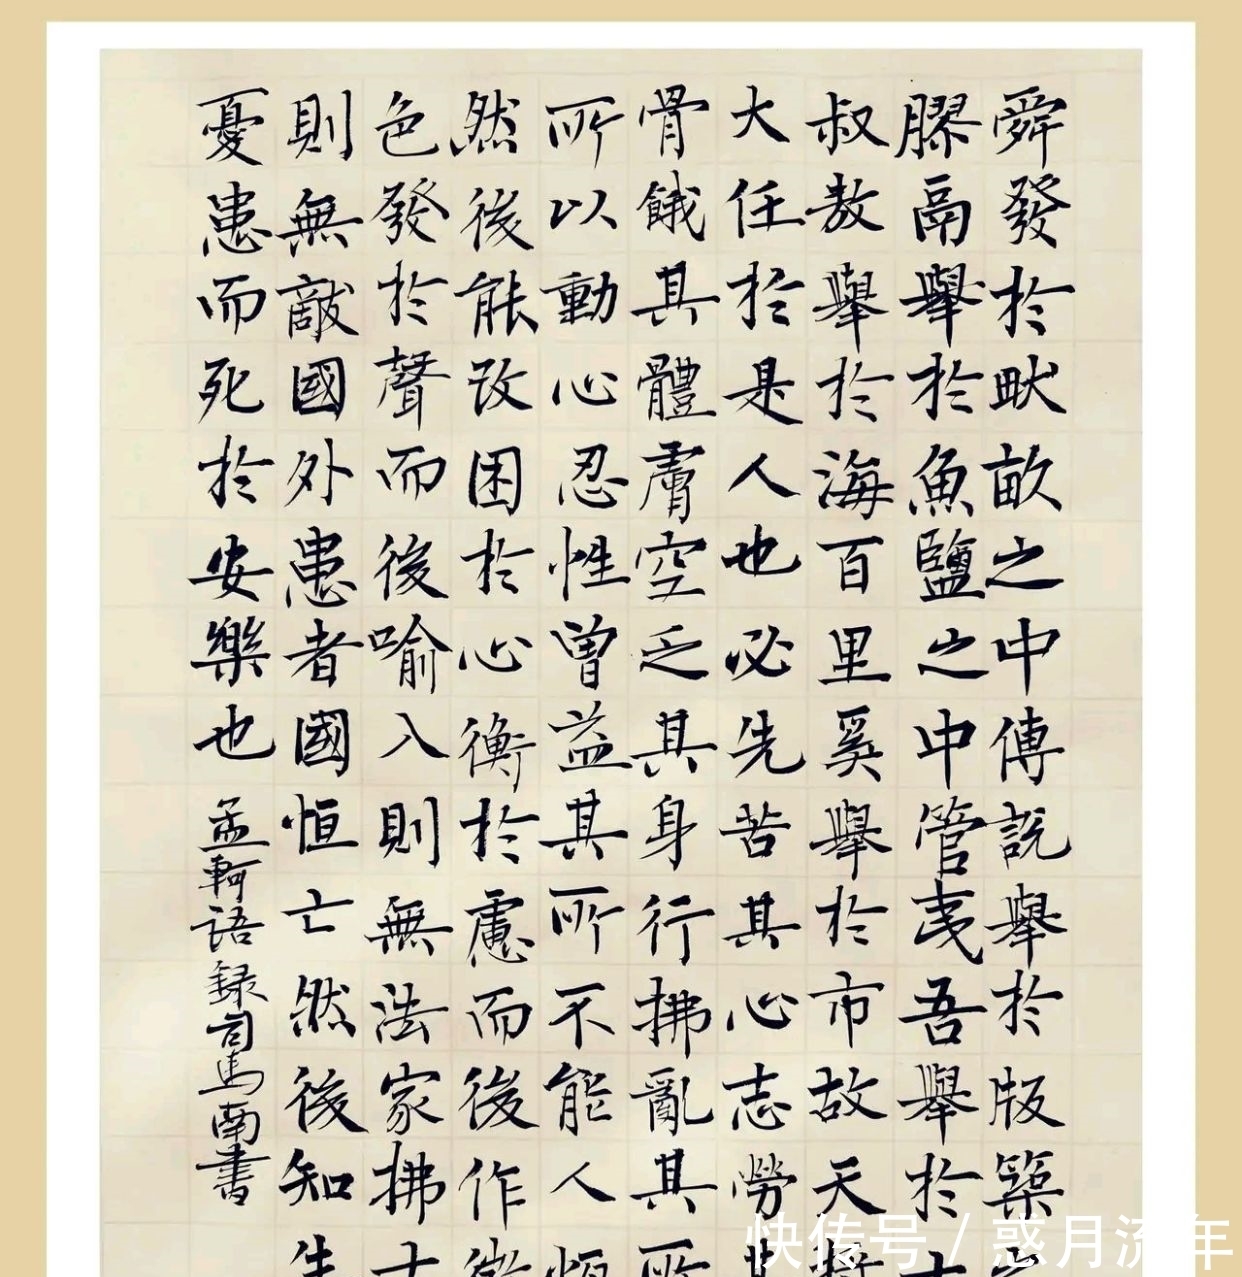 舜發於畎畝之中傅說舉於版築之
膠鬲舉於魚鹽之中管夷吾舉於士
叔敖舉於海百里奚舉於市故天將
大任於是人也必先苦其心志勞其
骨餓其體膚空乏其身行拂亂其所
所以動心忍性曾益其所不能人恒
然後能改困於心衡於慮而後作徵
色發於聲而後喻入則無法家拂士
則無敵國外患者國恒亡然後知生
憂患而死於安樂也 孟軻語録司馬南書
快传号/惑月流年